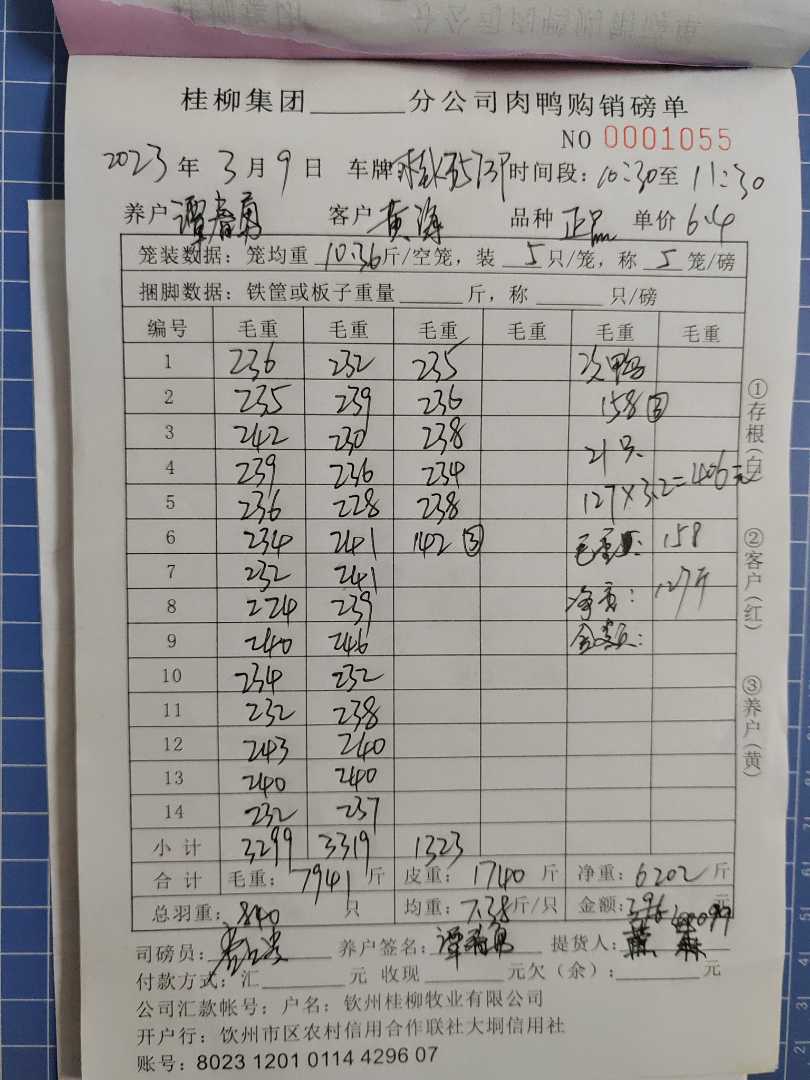 桂柳集团______分公司肉鸭购销磅单
NO 0001055
2023年3月9日 车牌 时间段：10:30至11:30
养户 谭春勇 客户 黄海 品种 正品 单价 6.4
笼装数据：笼均重 10.36斤/空笼，装 5只/笼，称 5笼/磅
捆脚数据：铁筐或板子重量______斤，称______只/磅
编号 毛重 毛重 毛重 毛重 毛重 毛重
1 236 232 235 次鸭
2 235 239 236 158⑤
3 242 230 238 21只
4 239 236 234 127×3.2=406元
5 236 228 238
6 234 241 142③ 毛重: 158
7 232 241
8 224 239 净重: 127斤
9 240 246 金额:
10 234 232
11 232 238
12 243 240
13 240 240
14 232 237
小计 3299 3319 1323
合计 毛重：7941斤 皮重：1740斤 净重：6202斤
总羽重：840只 均重：7.38斤/只 金额: 元
司磅员： 养户签名：谭春勇 提货人：
付款方式：汇______元 收现______元欠（余）：______元
公司汇款帐号：户名：钦州桂柳牧业有限公司
开户行：钦州市区农村信用合作联社大垌信用社
账号：8023 1201 0114 4296 07
①存根（白） ②客户（红） ③养户（黄）